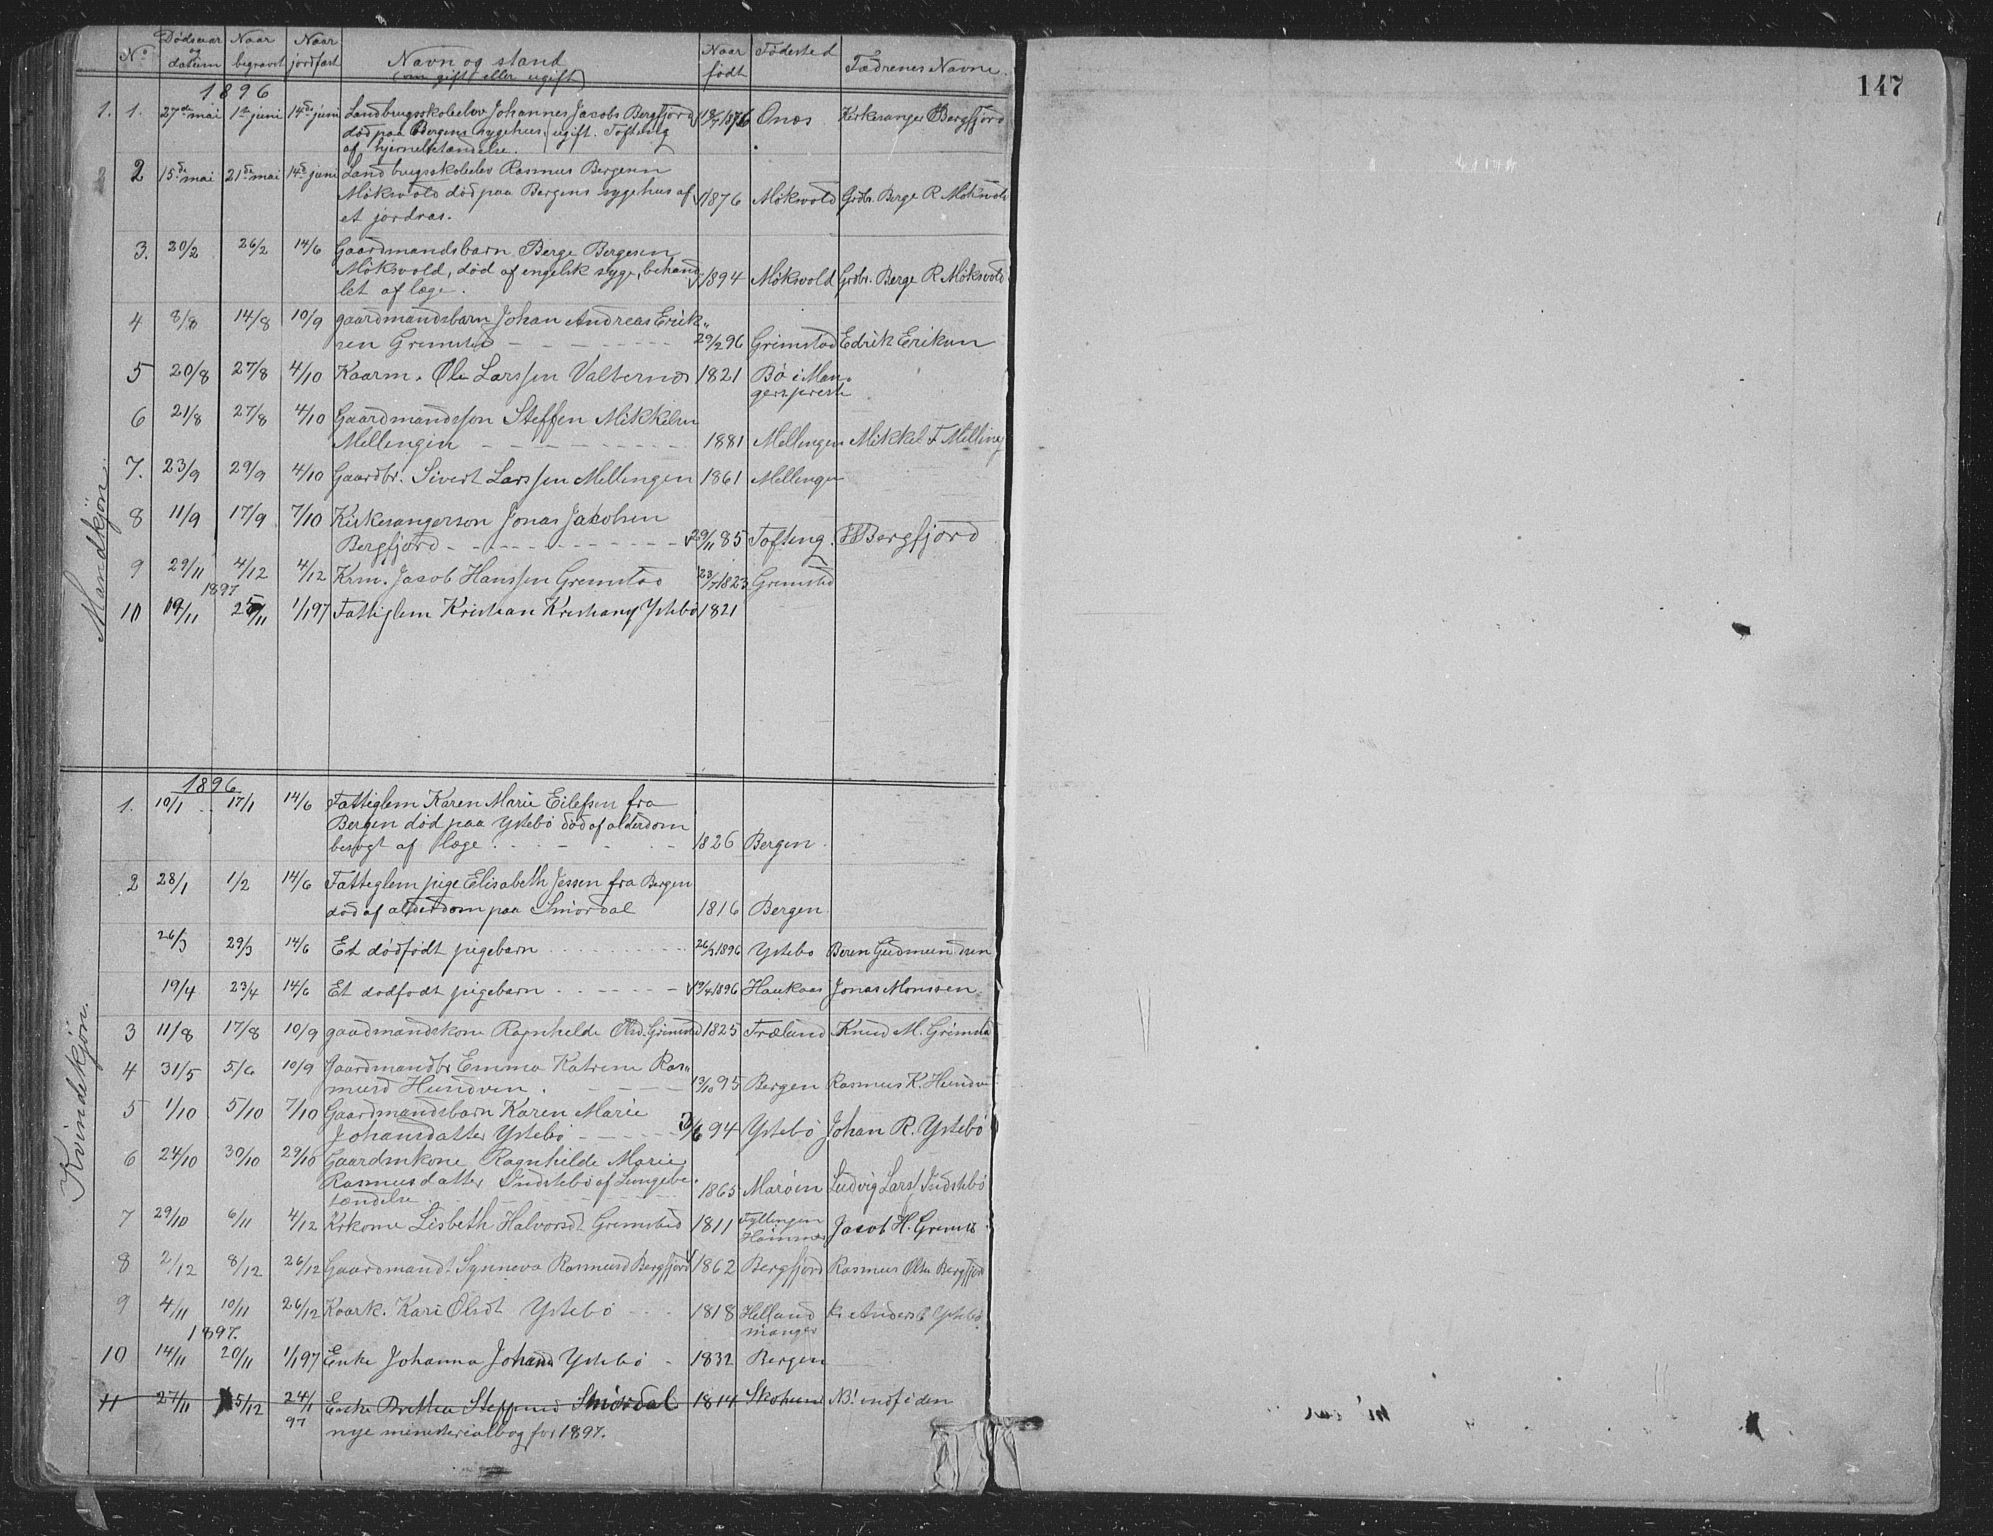 147
No Dødsaar og datum Naar begravet Naar jordfæst Navn og stand (om gift eller ugift) Naar født Fødested Fædrenes Navne.
Mandkjøn.
1896
1. 1. 27de mai 1ste juni 14de juni Landbrugsskoleelev Johannes Jacobs Bergfjord 1876 Onæs Kirkesanger Bergfjord
død paa Bergens sygehus. ugift. Tofting
af hjernebetændelse.
2 2 15de mai 21de mai 14de juni Landbrugsskoleelev Rasmus Bergesen
Möksvold død paa Bergens sygehus af 1876 Möksvold Grdbr. Berge R Möksvold
et jordras.
3. 20/2 26/2 14/6 Gaardmandsbarn Berge Bergesen
Möksvold, död af engelsk syge, behand 1894 Möksvold Grdbr. Berge R Möksvold
let af læge.
4 8/8 14/8 10/9 gaardmandsbarn Johan Andreas Erik„
sen Grimstad 29/2 96 Grimstad Edrik Eriksen
5 20/8 27/8 4/10 Kaarm. Ole Larssen Valternæs 1821 Bö i Man„
gers prest
6 21/8 27/8 4/10 Gaardmandsson Steffen Mikkelsen
Mellingen 1881 Mellingen Mikkel F Melling
7. 23/9 29/9 4/10 Gaardbr. Sivert Larssen Mellingen 1861 Mellingen
8 11/9 17/9 7/10 Kirkesangerson Jonas Jacobsen
Bergfjord 29/11 85 Tofting. Bergfjord
9 29/11 4/12 4/12 Krm. Jacob Hanssen Grimstad 23/7 1823 Grimstad
1897
10 19/11 25/11 1/1 97 Fattiglem Kristian Kristians Ystebö 1821
Kvindekjön.
1896
1. 10/1 17/1 14/6 Fattiglem Karen Marie Eilefsen fra
Bergen död paa Ystebö död af alderdom
besøgt af læge. 1826 Bergen.
2 28/1 1/2 14/6 Fattiglem pige Elisabeth Jessen fra Bergen
död af alderdom paa Smördal 1816 Bergen
26/3 29/3 14/6 Et dödfödt pigebarn 26/3 1896 Ystebo Beren Gudmundsen
19/4 23/4 14/6 Et dodfodt pigebarn 19/4 1896 Haukaas Jonas Monssen.
3 11/8 17/8 10/9 gaardmandskone Ragnhilde Olsd. Grimstad 1825 Træland Knud M. Grimstad
4 31/5 5/6 10/9 Gaardmandbr Emma Katrine Ras„
musd Hundven. 13/10 95 Bergen Rasmus K. Hundv
5 1/10 5/10 7/10 Gaardmandsbarn Karen Marie
Johansdatter Ystebö 3/6 94 Ystebö Johan R. Ystebö
6 24/10 30/10 29/10 Gaardmkone Ragnhilde Marie
Rasmusdatter Indstebö af Lungebe„ 1865 Maröen Ludvig Lars Indstebö
tændelse
7 29/10 6/11 4/12 Krkone Lisbeth Halvorsdt Grimstad 1811 Fyllingen Hammer Jacob H. Grimst
8 2/12 8/12 26/12 Gaardmandt. Synneva Rasmusd Bergfjord 1862 Bergfjord Rasmus Olsen Bergfjord
9 4/11 10/11 26/12 Kaark. Kari Olsdt Ystebö 1818 Helland manger Anders Ystebö
1897.
10 14/11 20/11 1/1 97 Enke Johanna Johans Ystebö 1832 Bergen
11 27/11 5/12 24/1 97 Enke Brithe Steffensd Smördal 1814 NB! indf i den
nye ministerialbog for 1897.